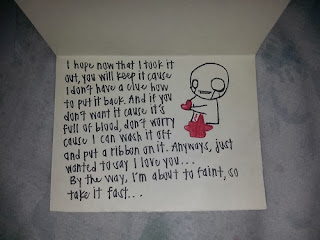 I hope now that I took it
out, you will keep it cause
I don't have a clue how
to put it back. And if you
don't want it cause it's
full of blood, don't worry
cause I can wash it off
and put a ribbon on it. Anyways, just
wanted to say I love you...
By the way, I'm about to faint, so
take it fast...